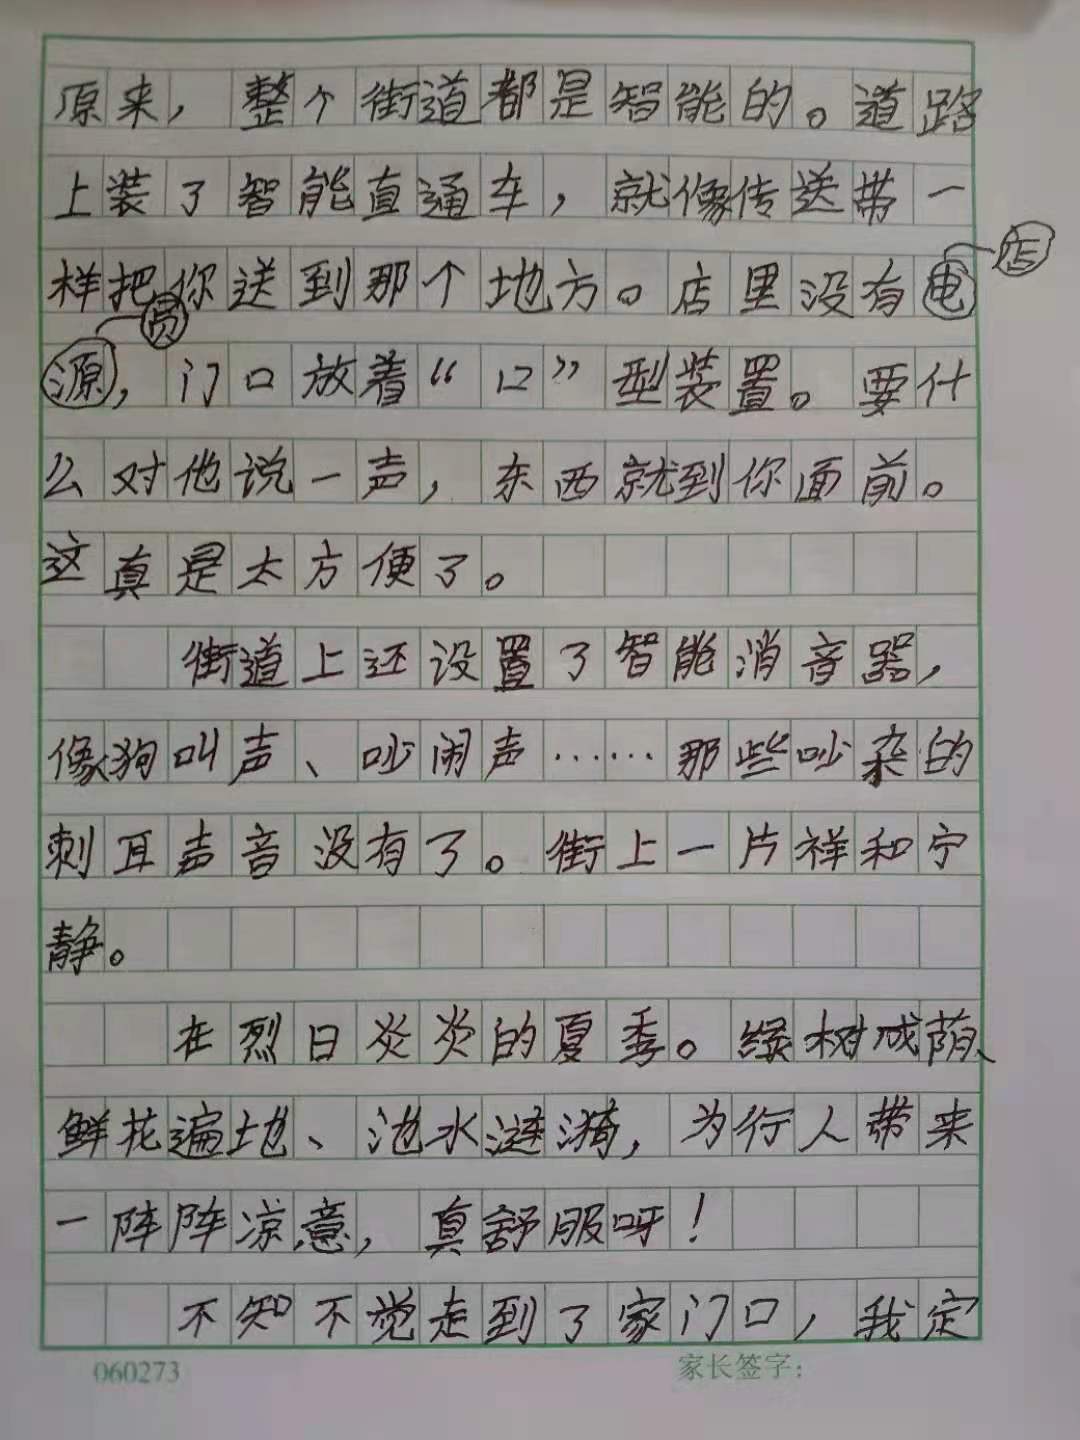 原来，整个街道都是智能的。道路
上装了智能直通车，就像传送带一
样把你送到那个地方。店里没有电
店
员
源，门口放着“口”型装置。要什
么对他说一声，东西就到你面前。
这真是太方便了。
街道上还设置了智能消音器，
像狗叫声、吵闹声……那些吵杂的
刺耳声音没有了。街上一片祥和宁
静。
在烈日炎炎的夏季。绿树成荫、
鲜花遍地、池水涟漪，为行人带来
一阵阵凉意，真舒服呀！
不知不觉走到了家门口，我定
060273
家长签字：